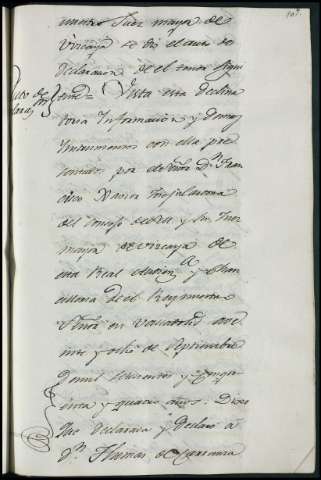 nuestro Juez mayor de
Vizcaya se dio el auto de
Declarazn de el tenor sigui
ente = Vista esta Declina
toria Informacion y demas
Instrumentos con ella pre
sentados por el Señor Dn Fran
cisco Xavier
del Consejo de S M y su Juez
mayor de Vizcaya de
esta Real Audien.a y Chan
cilleria
en Valladolid a ve
inte y ocho de Septiembre
de mil setecientos y Cinqu
enta y quatro años: Dixo
que Declarava y Declaro a
Dn Thomas de Carranza
Auto de